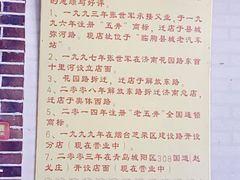 的思维与好评。
1、一九九三年张世军承接父业,于一九
九六年注册“五井”商标,迁店于县城
弥河路。现店址位于“临朐县城老汽车
站”。
2、一九九七年张世军在济南花园路东首
十里河设立店面。
3、花园路拆迁,迁店于解放东路
4、二零零八年解放东路拆迁济南总店,
迁店于奥体西路。
5、二零一四年注册“老五井”全国连锁
商标。
6、一九九九年在烟台芝罘区建设路开设
分店（现在营业中）
7、二零零三年在青岛城阳区308国道(赵
戈庄）开设店面（现在营业中）